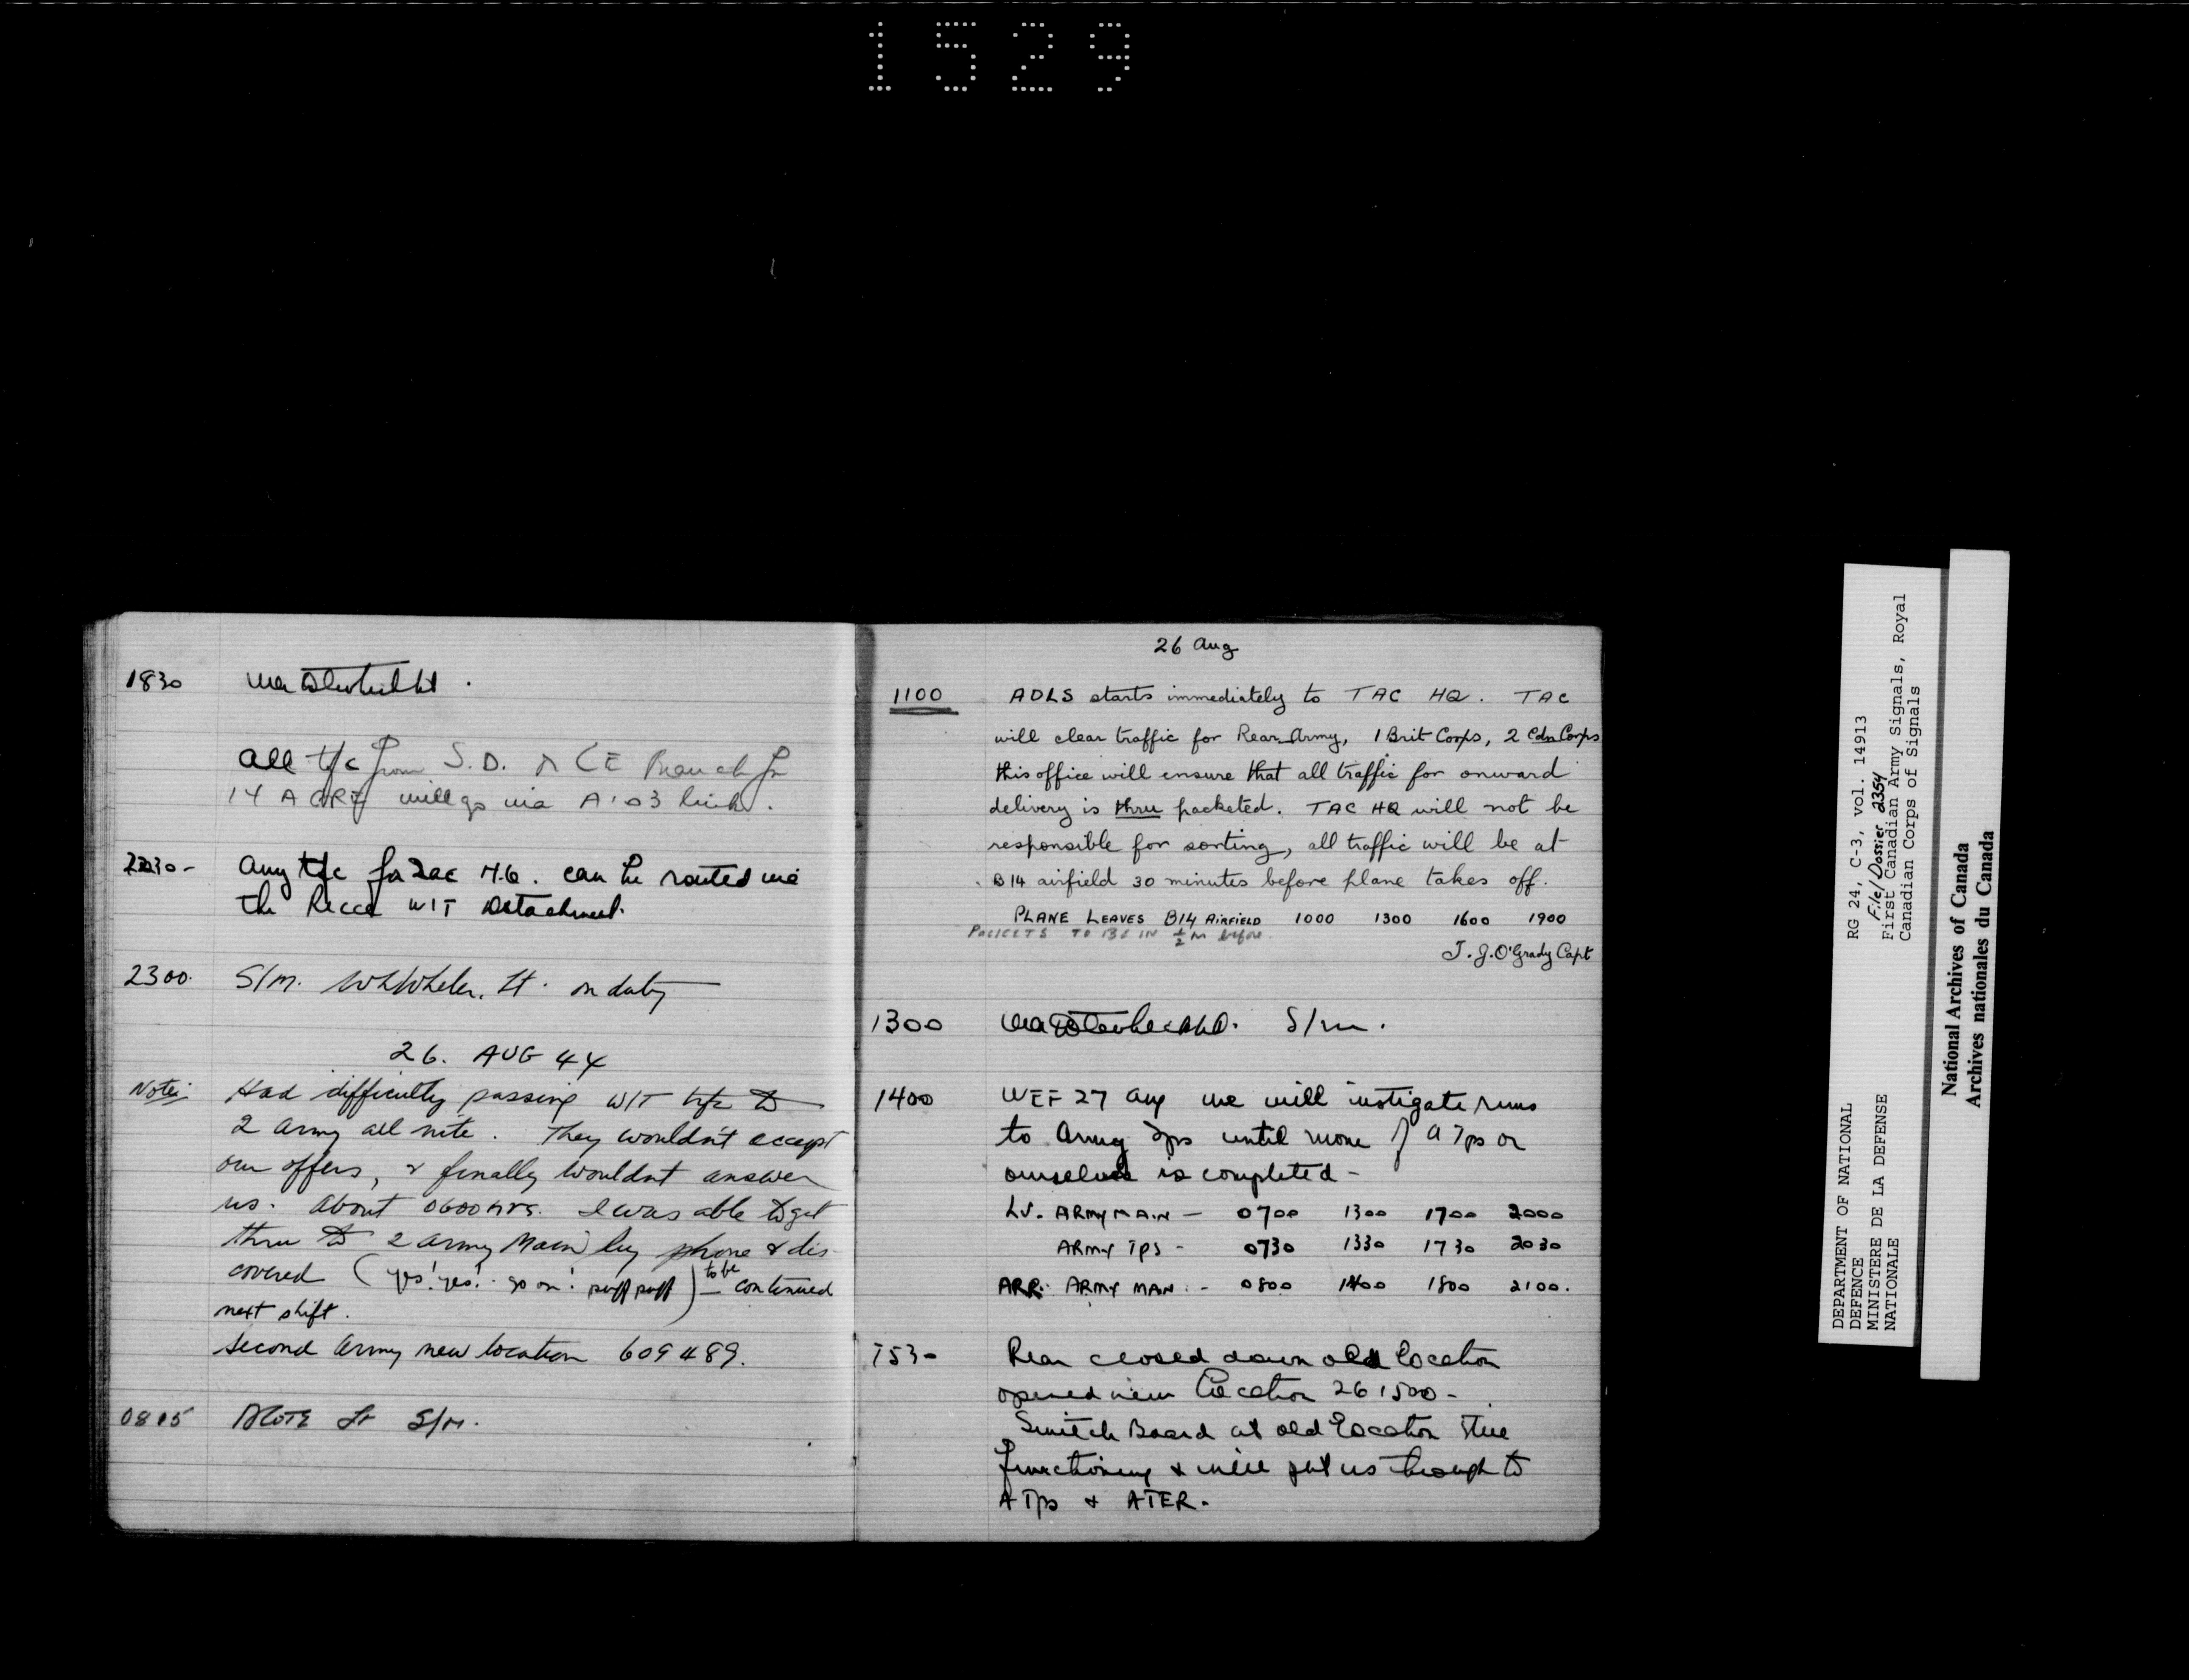 1529
1830
All tfc from S.D. & CE Branch for
14 AGRA will go via A103 link.
2230 -
Any tfc for Tac H.Q. can be routed via
the Recce W/T Detachment.
2300. S/M. Wheeler. Lt. on duty
26. AUG 44
Note: Had difficulty passing W/T tfc to
2 Army all nite. They wouldn't accept
our offers, & finally wouldnt answer
us. About 0600 hrs. I was able to get
thru to 2 Army Main by phone & dis-
covered (yes! yes! go on! puff puff) - to be continued
next shift.
Second Army new location 609489.
0815 Lt S/M.
26 Aug
1100 ADLS starts immediately to TAC HQ. TAC
will clear traffic for Rear Army, 1 Brit Corps, 2 Cdn Corps
this office will ensure that all traffic for onward
delivery is thru packeted. TAC HQ will not be
responsible for sorting, all traffic will be at
B14 airfield 30 minutes before plane takes off.
PLANE LEAVES B14 AIRFIELD 1000 1300 1600 1900
PACKETS TO BE IN ½ hr before.
J. J. O'Grady Capt
1300 S/M.
1400 WEF 27 Aug we will instigate runs
to Army Tps until move of A Tps or
ourselves is completed -
LV. ARMY MAIN - 0700 1300 1700 2000
ARMY TPS - 0730 1330 1730 2030
ARR. ARMY MAIN - 0800 1400 1800 2100.
1530 Rear closed down old location
opened new location 261500 -
Switch Board at old location still
functioning & will put us through to
A Tps & ATER.
DEPARTMENT OF NATIONAL
DEFENCE
MINISTERE DE LA DEFENSE
NATIONALE
RG 24, C-3, vol. 14913
File/Dossier 2354
First Canadian Army Signals, Royal
Canadian Corps of Signals
National Archives of Canada
Archives nationales du Canada